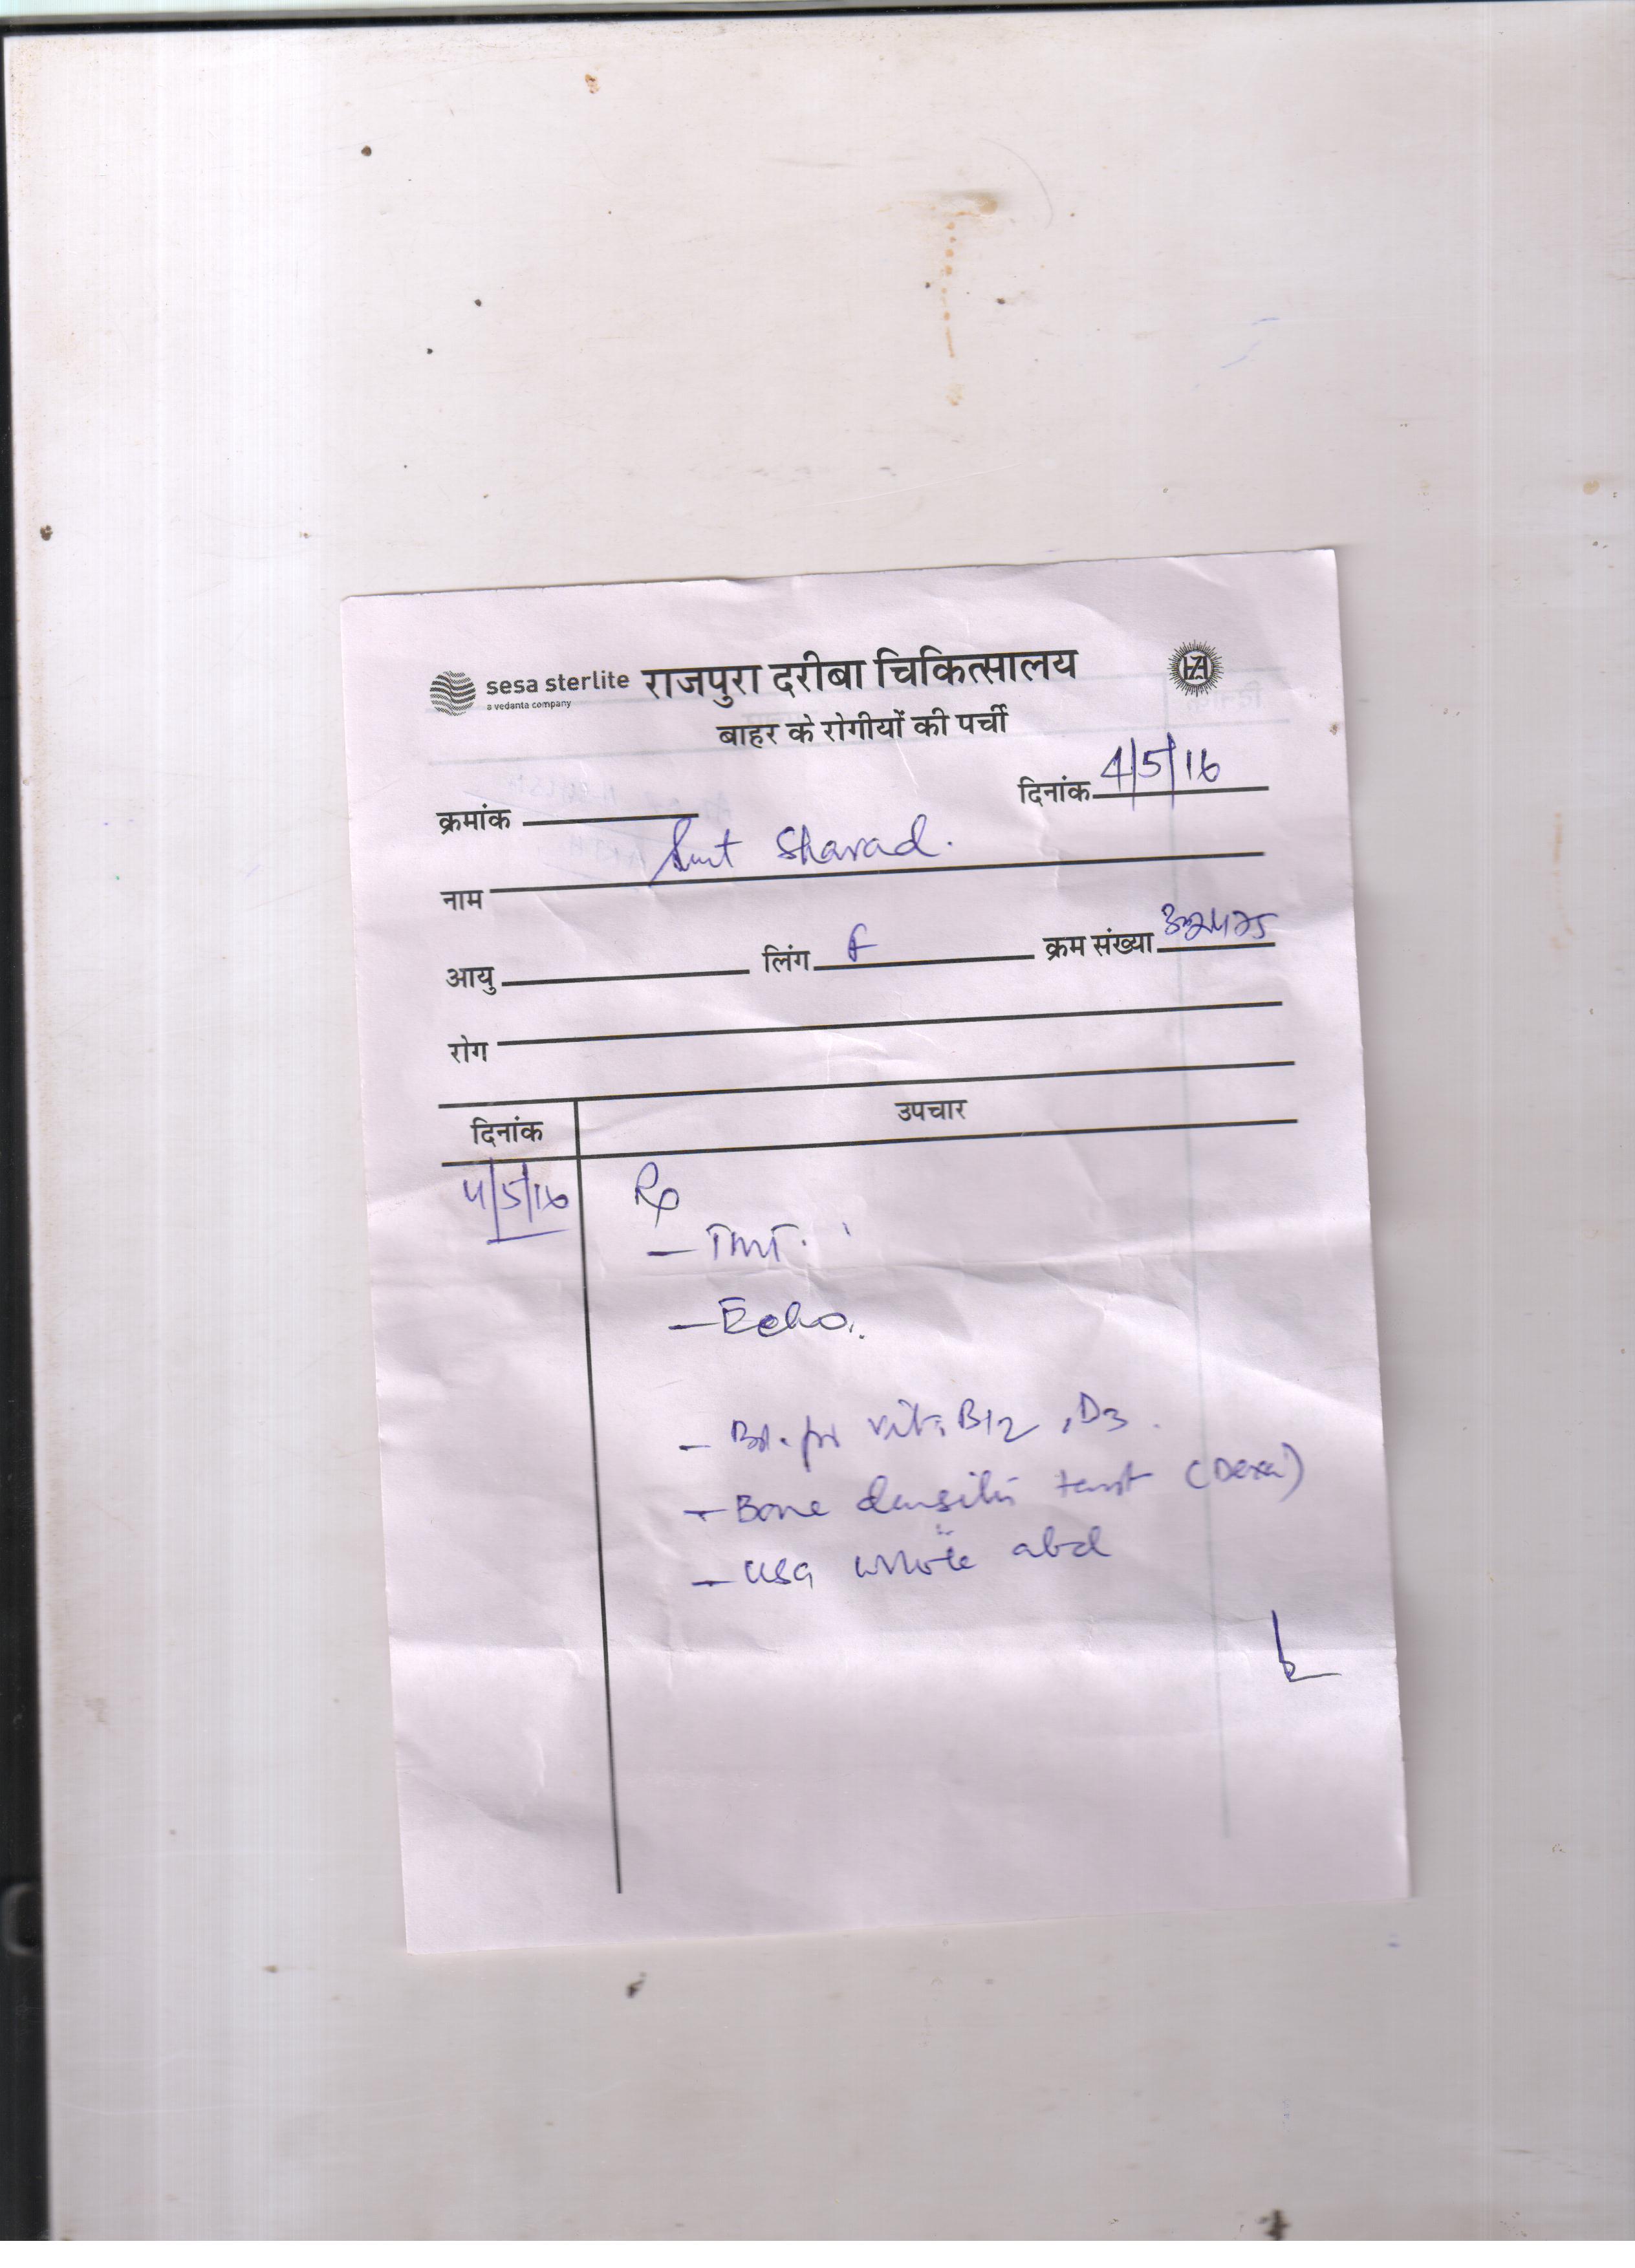 sesa sterlite राजपुरा दरीबा चिकित्सालय
a vedanta company
बाहर के रोगीयों की पर्ची
दिनांक 4/5/16
क्रमांक
नाम Smt Sharad.
आयु लिंग F क्रम संख्या
रोग
दिनांक उपचार
4/5/16 Rx
- TMT.
- Echo.
- Bl. for vit. B12, D3.
- Bone density test (Dexa)
- USG whole abd